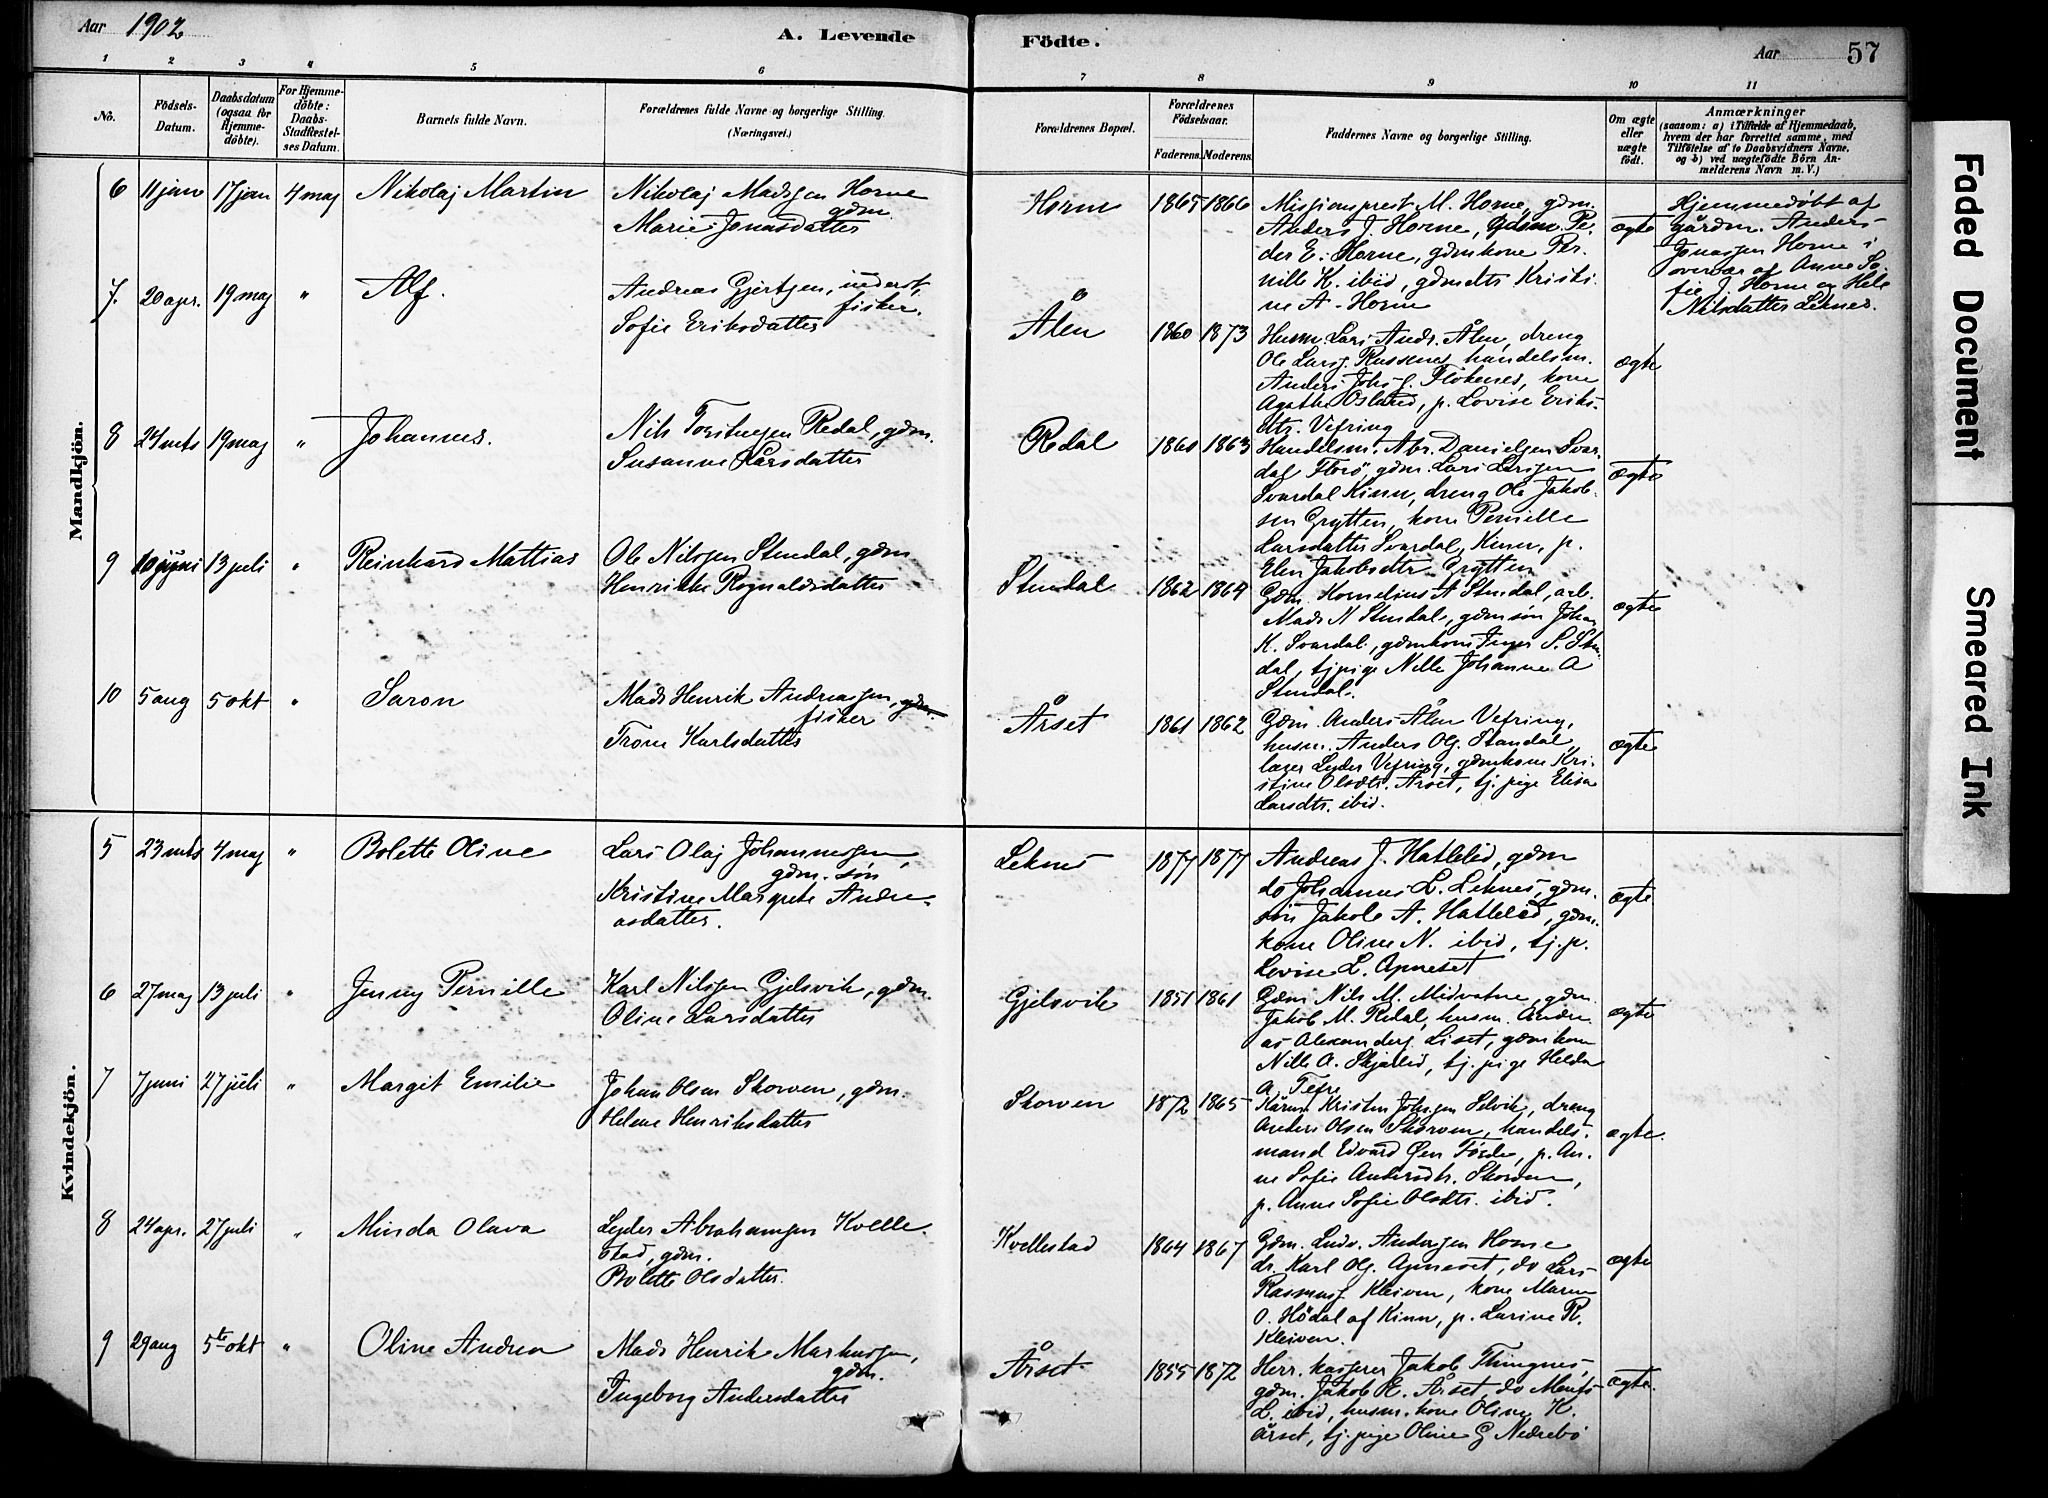 Aar 1902
A. Levende Födte.
Aar 57
1 2 3 4 5 6 7 8 9 10 11
No.
Födsels-Datum.
Daabsdatum (ogsaa for Hjemme-döbte).
For Hjemme-döbte: Daabs-Stadfæstel-ses Datum.
Barnets fulde Navn.
Forældrenes fulde Navne og borgerlige Stilling.
(Næringsvei.)
Forældrenes Bopæl.
Forældrenes Födselsaar.
Faderens. Moderens.
Faddernes Navne og borgerlige Stilling.
Om ægte eller uægte födt.
Anmærkninger
(saasom: a) i Tilfælde af Hjemmedaab,
hvem der har forrettet samme, med
Tilföielse af to Daabsvidners Navne.
og b) ved uægtefödte Börn An-
melderens Navn m. V.)
Mandkjön.
6 11 jan 17 jan 4 maj Nikolaj Martin
Nikolaj Madsen Horne
gdm.
Marie Jonasdatter
Horne 1865 1866
Missionsprest M. Horne, gdm.
Anders J. Horne, gdm. Pe-
der E. Horne, gdmkone Per-
nille K. ibid, gdmdtr Kristi-
ne A. Horne
ægte
Hjemmedøbt af
gårdm. Anders
Jonassen Horne i
overvær af Anne So-
fie J. Horne og Hele
Nilsdatter Leknes.
7. 20 apr. 19 maj " Alf.
Andreas Gjertsen, inderst,
fisker.
Sofie Eriksdatter
Ålen 1860 1873
Husm. Lars Andr. Ålen, dreng
Ole Larss. Russenes, handelsm.
Anders Johs. Flokenes, kone
Agathe Osland, p. Lovise Eriks-
dtr. Vefring
ægte
8 24 mts 19 maj " Johannes.
Nils Torstensen Redal, gdm.
Susanne Larsdatter
Redal 1860 1863
Handelsm. Abr. Danielsen Svar-
dal Florø, gdm. Lars Larsen
Svardal Kinn, dreng Ole Jakob-
sen Grytten, kone Pernille
Larsdatter Svardal, Kinn, p.
Elen Jakobsdtr. Grytten
ægte
9 10 juni 13 juli " Reinhard Mattias
Ole Nilssen Stendal, gdm
Henrikke Rognaldsdatter
Stendal 1862 1864
Gdm. Kornelius A Stendal, arb.
Mads N Stendal, gdmsøn Johan
K. Svardal, gdmkone Inger S. Sten-
dal, tjpige Nille Johanne A
Stendal.
ægte
10 5 aug 5 okt " Saron
Mads Henrik Andreassen, gdm.
fisker
Trone Karlsdatter
Årset 1861 1862
Gdm. Anders Ålen Vefring,
husm. Anders Ols. Standal,
lærer Leder Vefring, gdmkone Kri-
stine Olsdtr. Årset, tj. pige Elisa
Larsdtr. ibid.
ægte
Kvindekjön.
5 23 mts 4 maj " Bolette Oline
Lars Olaj Johannessen,
gdm. søn
Kristine Margrete Andre-
asdatter.
Leknes 1877 1877
Andreas J. Hatleлid, gdm
do Johannes L. Leknes, gdm.
søn Jakob A. Hatlelid, gdm.
kone Oline N. ibid, tj. p.
Lovise L. Apneset
ægte
6 27 maj 13 juli " Jenny Pernille
Karl Nilssen Gjelsvik, gdm.
Oline Larsdatter
Gjelsvik 1851 1861
Gdm Nils M. Midvatne, gdm.
Jakob M. Redal, husm. Andre-
as Alexanders. Liset, gdmkone
Nille A. Skjerlid, tj. pige Helda
A Tefre
ægte
7 7 juni 27 juli " Margit Emilie
Johan Olsen Skorven, gdm.
Helene Henriksdatter
Skorven 1872 1865
Kårm Kristen Johssen Selvik, dreng
Anders Olsen Skorven, handels-
mand Edvard Øen Førde, p. An-
ne Sofie Andersdtr. Skorven,
p. Anne Sofie Olsdtr. ibid.
ægte.
8 24 apr. 27 juli " Minda Olava
Leder Abrahamsen Kvelle-
stad, gdm.
Bolette Olsdatter.
Kvellestad 1864 1867
Gdm. Ludv. Andersen Horne
dr. Karl Ols. Apneset, do Lars
Rasmuss. Kleiven, kone Maren
O. Hødal af Kinn, p. Larine R.
Kleiven.
ægte
9 29 aug 5te okt " Oline Andrea
Mads Henrik Markussen,
gdm.
Ingeborg Andersdatter
Årset 1855 1872
Herr. kasserer Jakob Thingnes,
gdm. Jakob E. Årset, do Menfs
L. ibid, husm. kone Oline K.
Årset, tj. pige Oline G Nedrebø
ægte.
Faded Document
Smeared Ink